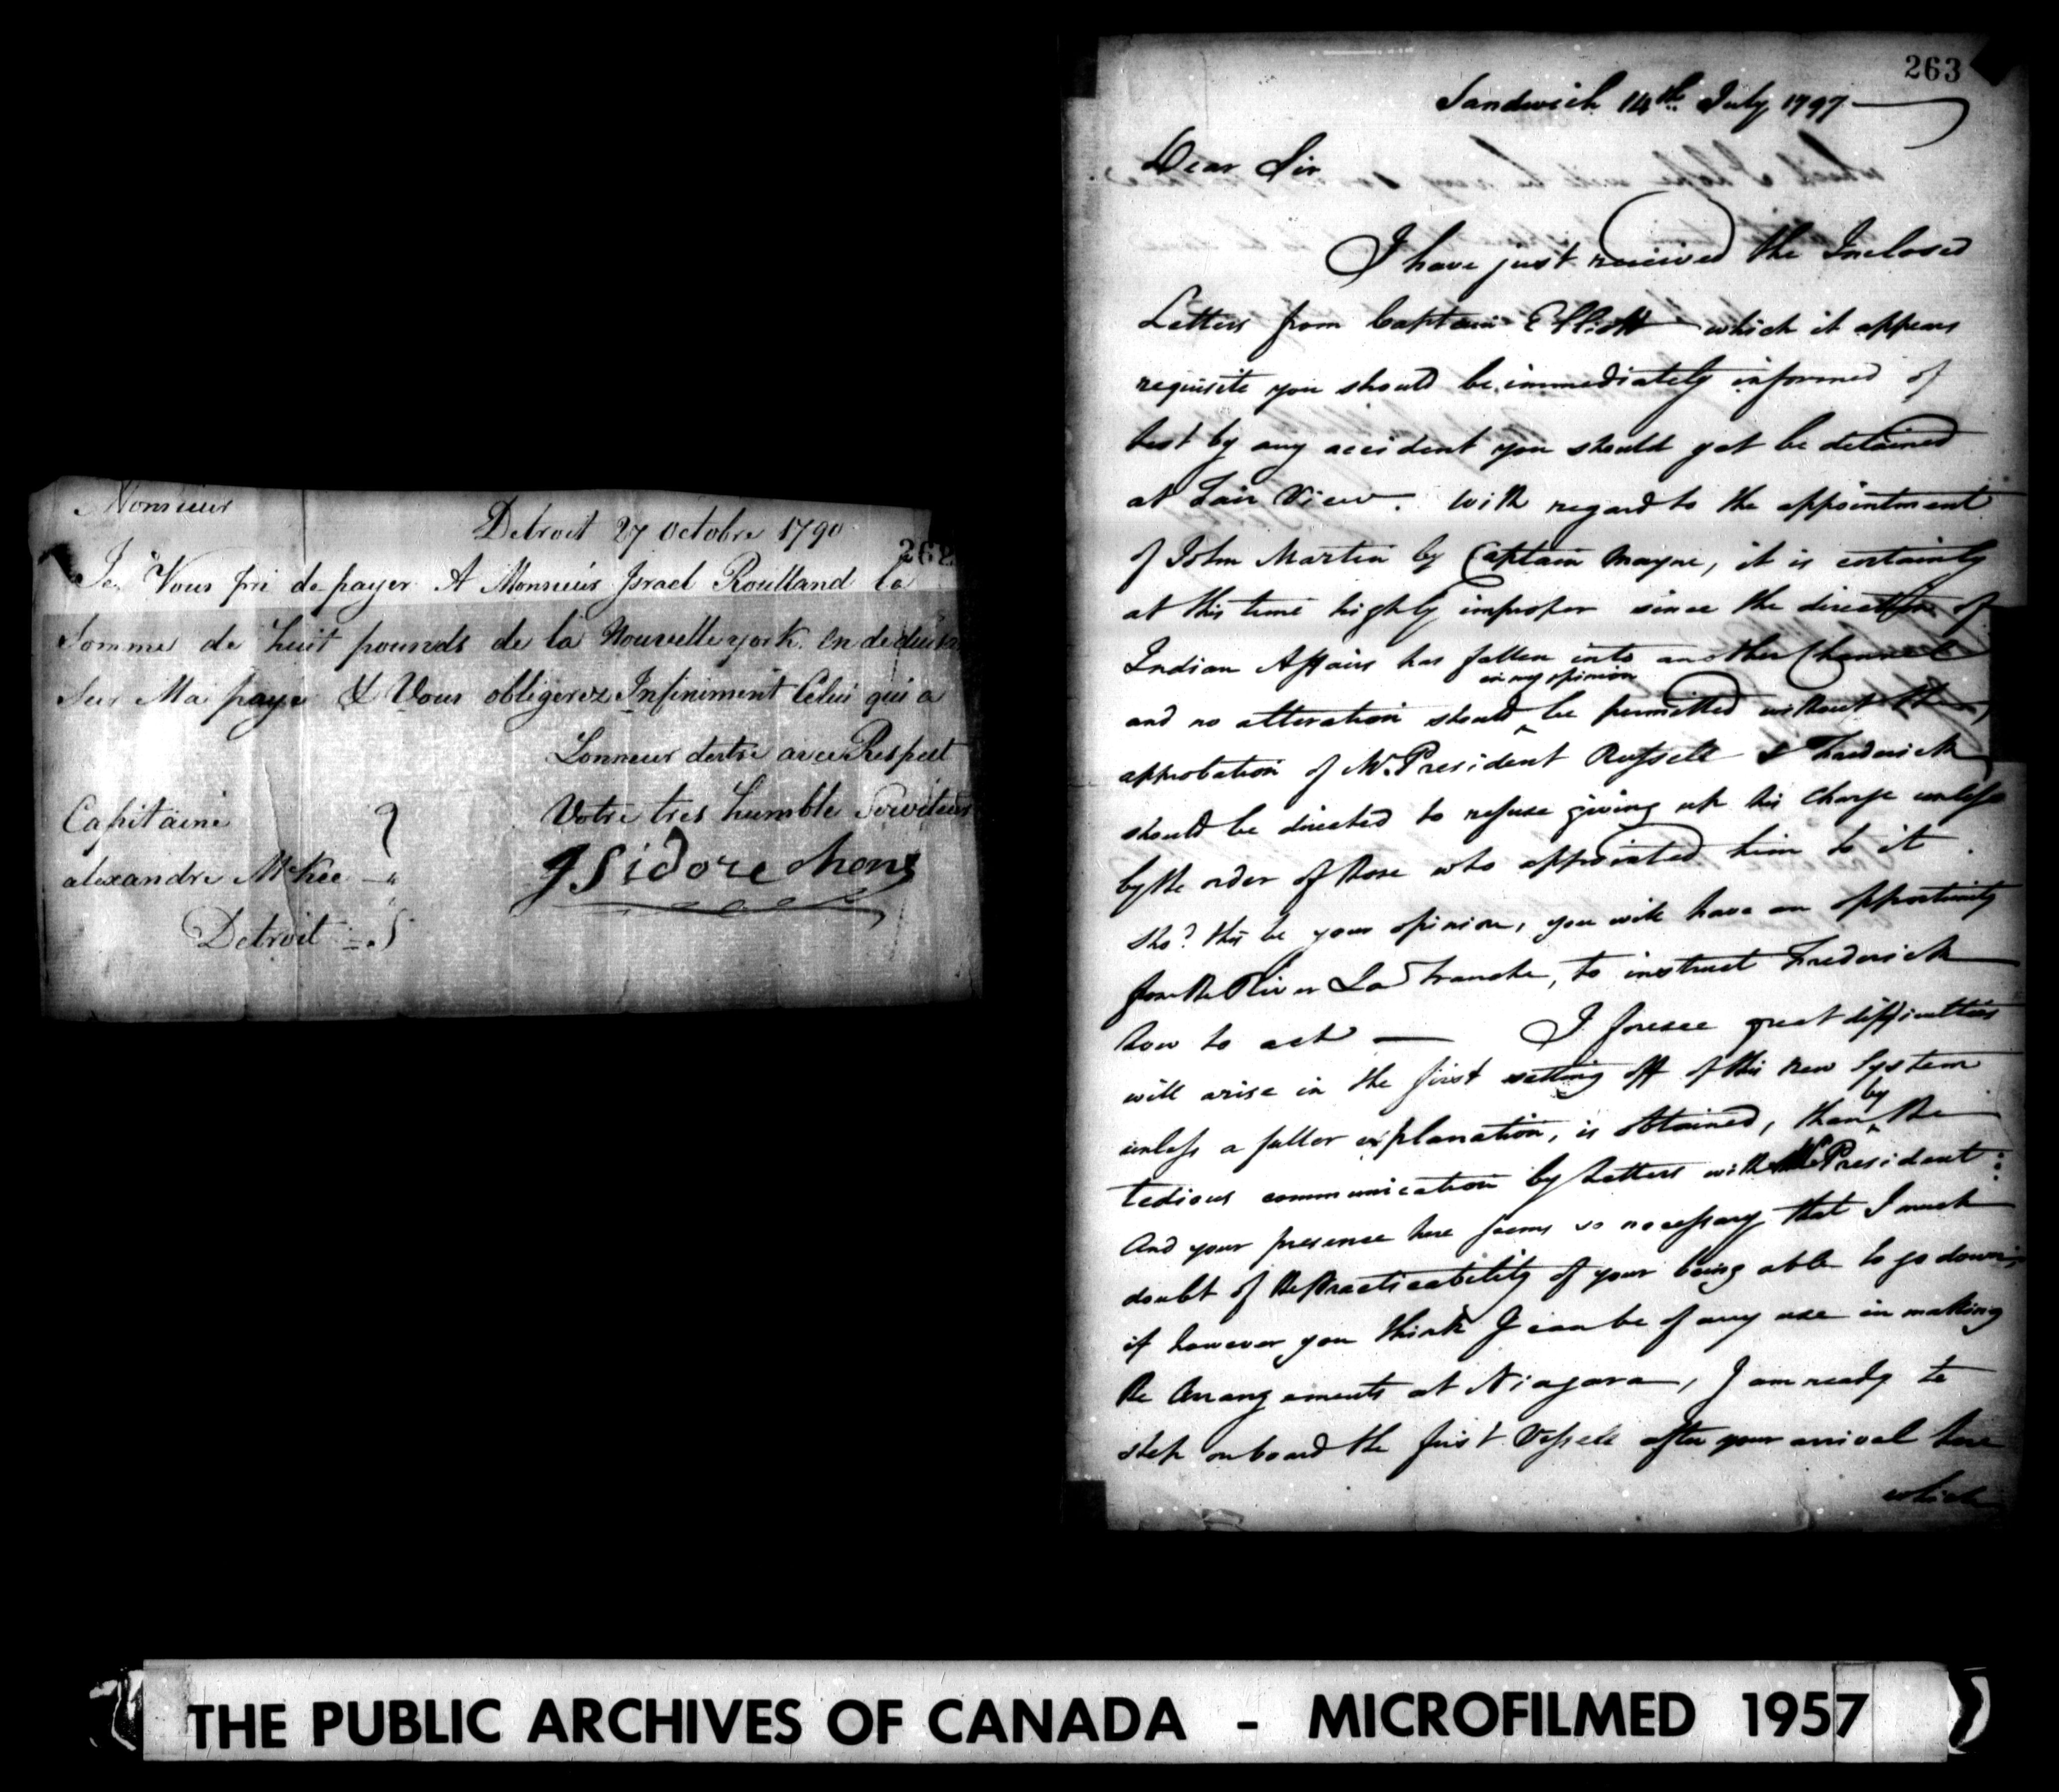 Monsieur
Detroit 27 octobre 1790
262
Je Vous pri de payer A Monsieur Israel Roulland la
Somme de huit pounds de la Nouvelle york. En deduir
Sur Ma paye & Vous obligerez Infiniment Celui qui a
Lonneur destre avec Respect
Votre tres humble Serviteur
Capitaine
alexandre McKee
Isidore chene
Detroit
263
Sandwich 14th July 1797
Dear Sir
I have just received the Inclosed
Letters from Captain Elliott which it appears
requisite you should be immediately informed of
lest by any accident you should yet be detained
at Fair View. With regard to the appointment
of John Martin by Captain Mayne, it is certainly
at this time highly improper since the direction of
Indian Affairs has fallen into another Channel
in my opinion
and no alteration should ^ be permitted without the
approbation of Mr. President Russell & Frederick
should be directed to refuse giving up his Charge unless
by the order of those who appointed him to it.
Shod. this be your opinion, you will have an opportunity
from the River La Tranche, to instruct Frederick
how to act — I foresee great difficulties
will arise in the first setting off of this new System
by
unless a fuller explanation, is obtained, than ^ the
tedious communication by Letters with Mr President:
And your presence here seems so necessary that I much
doubt of the Practicability of your being able to go down;
if however you think I can be of any use in making
the Arrangements at Niagara, I am ready to
step on board the first Vessell after your arrival here
which
THE PUBLIC ARCHIVES OF CANADA - MICROFILMED 1957